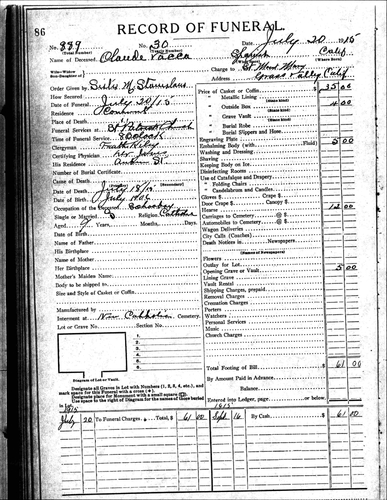 86
RECORD OF FUNERAL.
No. 889 No. 30 July 20 1915
(Total Number) (Yearly Number)
Name of Deceased, Claude Vacca Calif
(Where Born)
Charge to St Mary
Address Grass Valley Calif
Order Given by Sister M. Stanislaus
How Secured
Date of Funeral July 20/15
Place of Death
Funeral Services at St Patricks Church
Time of Funeral Service
Clergyman
Certifying Physician
His Residence
Number of Burial Certificate
Cause of Death
(Secondary)
Date of Death July 18/15
Date of Birth July 1906
Occupation of the Deceased Schoolboy
Single or Married S Religion Catholic
Aged 9 Years, Months, Days.
Date of Birth
Name of Father
His Birthplace
Name of Mother
Her Birthplace
Mother's Maiden Name
Body to be shipped to
Size and Style of Casket or Coffin
Manufactured by
Interment at New Catholic Cemetery
Lot or Grave No. Section No.
Diagram of Lot or Vault.
Designate all Graves in Lot with Numbers (1, 2, 3, 4, etc.), and
mark space for this Funeral with a cross (+).
Designate place for Monument with a small square
Use space to right of Diagram for names of those buried
in Lot.
Price of Casket or Coffin $ 35 00
" Metallic Lining
(State kind)
" Outside Box 4 00
(State kind)
" Grave Vault
(State kind)
" Burial Robe
" Burial Slippers and Hose
Engraving Plate
Embalming Body (with Fluid) 5 00
Washing and Dressing
Shaving
Keeping Body on Ice
Disinfecting Rooms
Use of Catafalque and Drapery
" Folding Chairs
" Candelabrum and Candles
Gloves $ Crape $
Door Crape $ Canopy $
Hearse 12 00
Carriages to Cemetery @ $
Automobiles to Cemetery @ $
Wagon Deliveries @ $
City Calls (Coaches) @ $
Death Notices in Newspapers
(Names of Newspapers)
Flowers
Outlay for Lot
Opening Grave or Vault 5 00
Lining Grave
Vault Rental
Shipping Charges, prepaid
Removal Charges
Cremation Charges
Porters
Watchers
Personal Services
Music
Church Charges
Total Footing of Bill $ 61 00
By Amount Paid in Advance
Balance
Entered into Ledger, page or below.
1915 1915
July 20 To Funeral Charges, Total, $ 61 00 Sept 16 By Cash $ 61 00